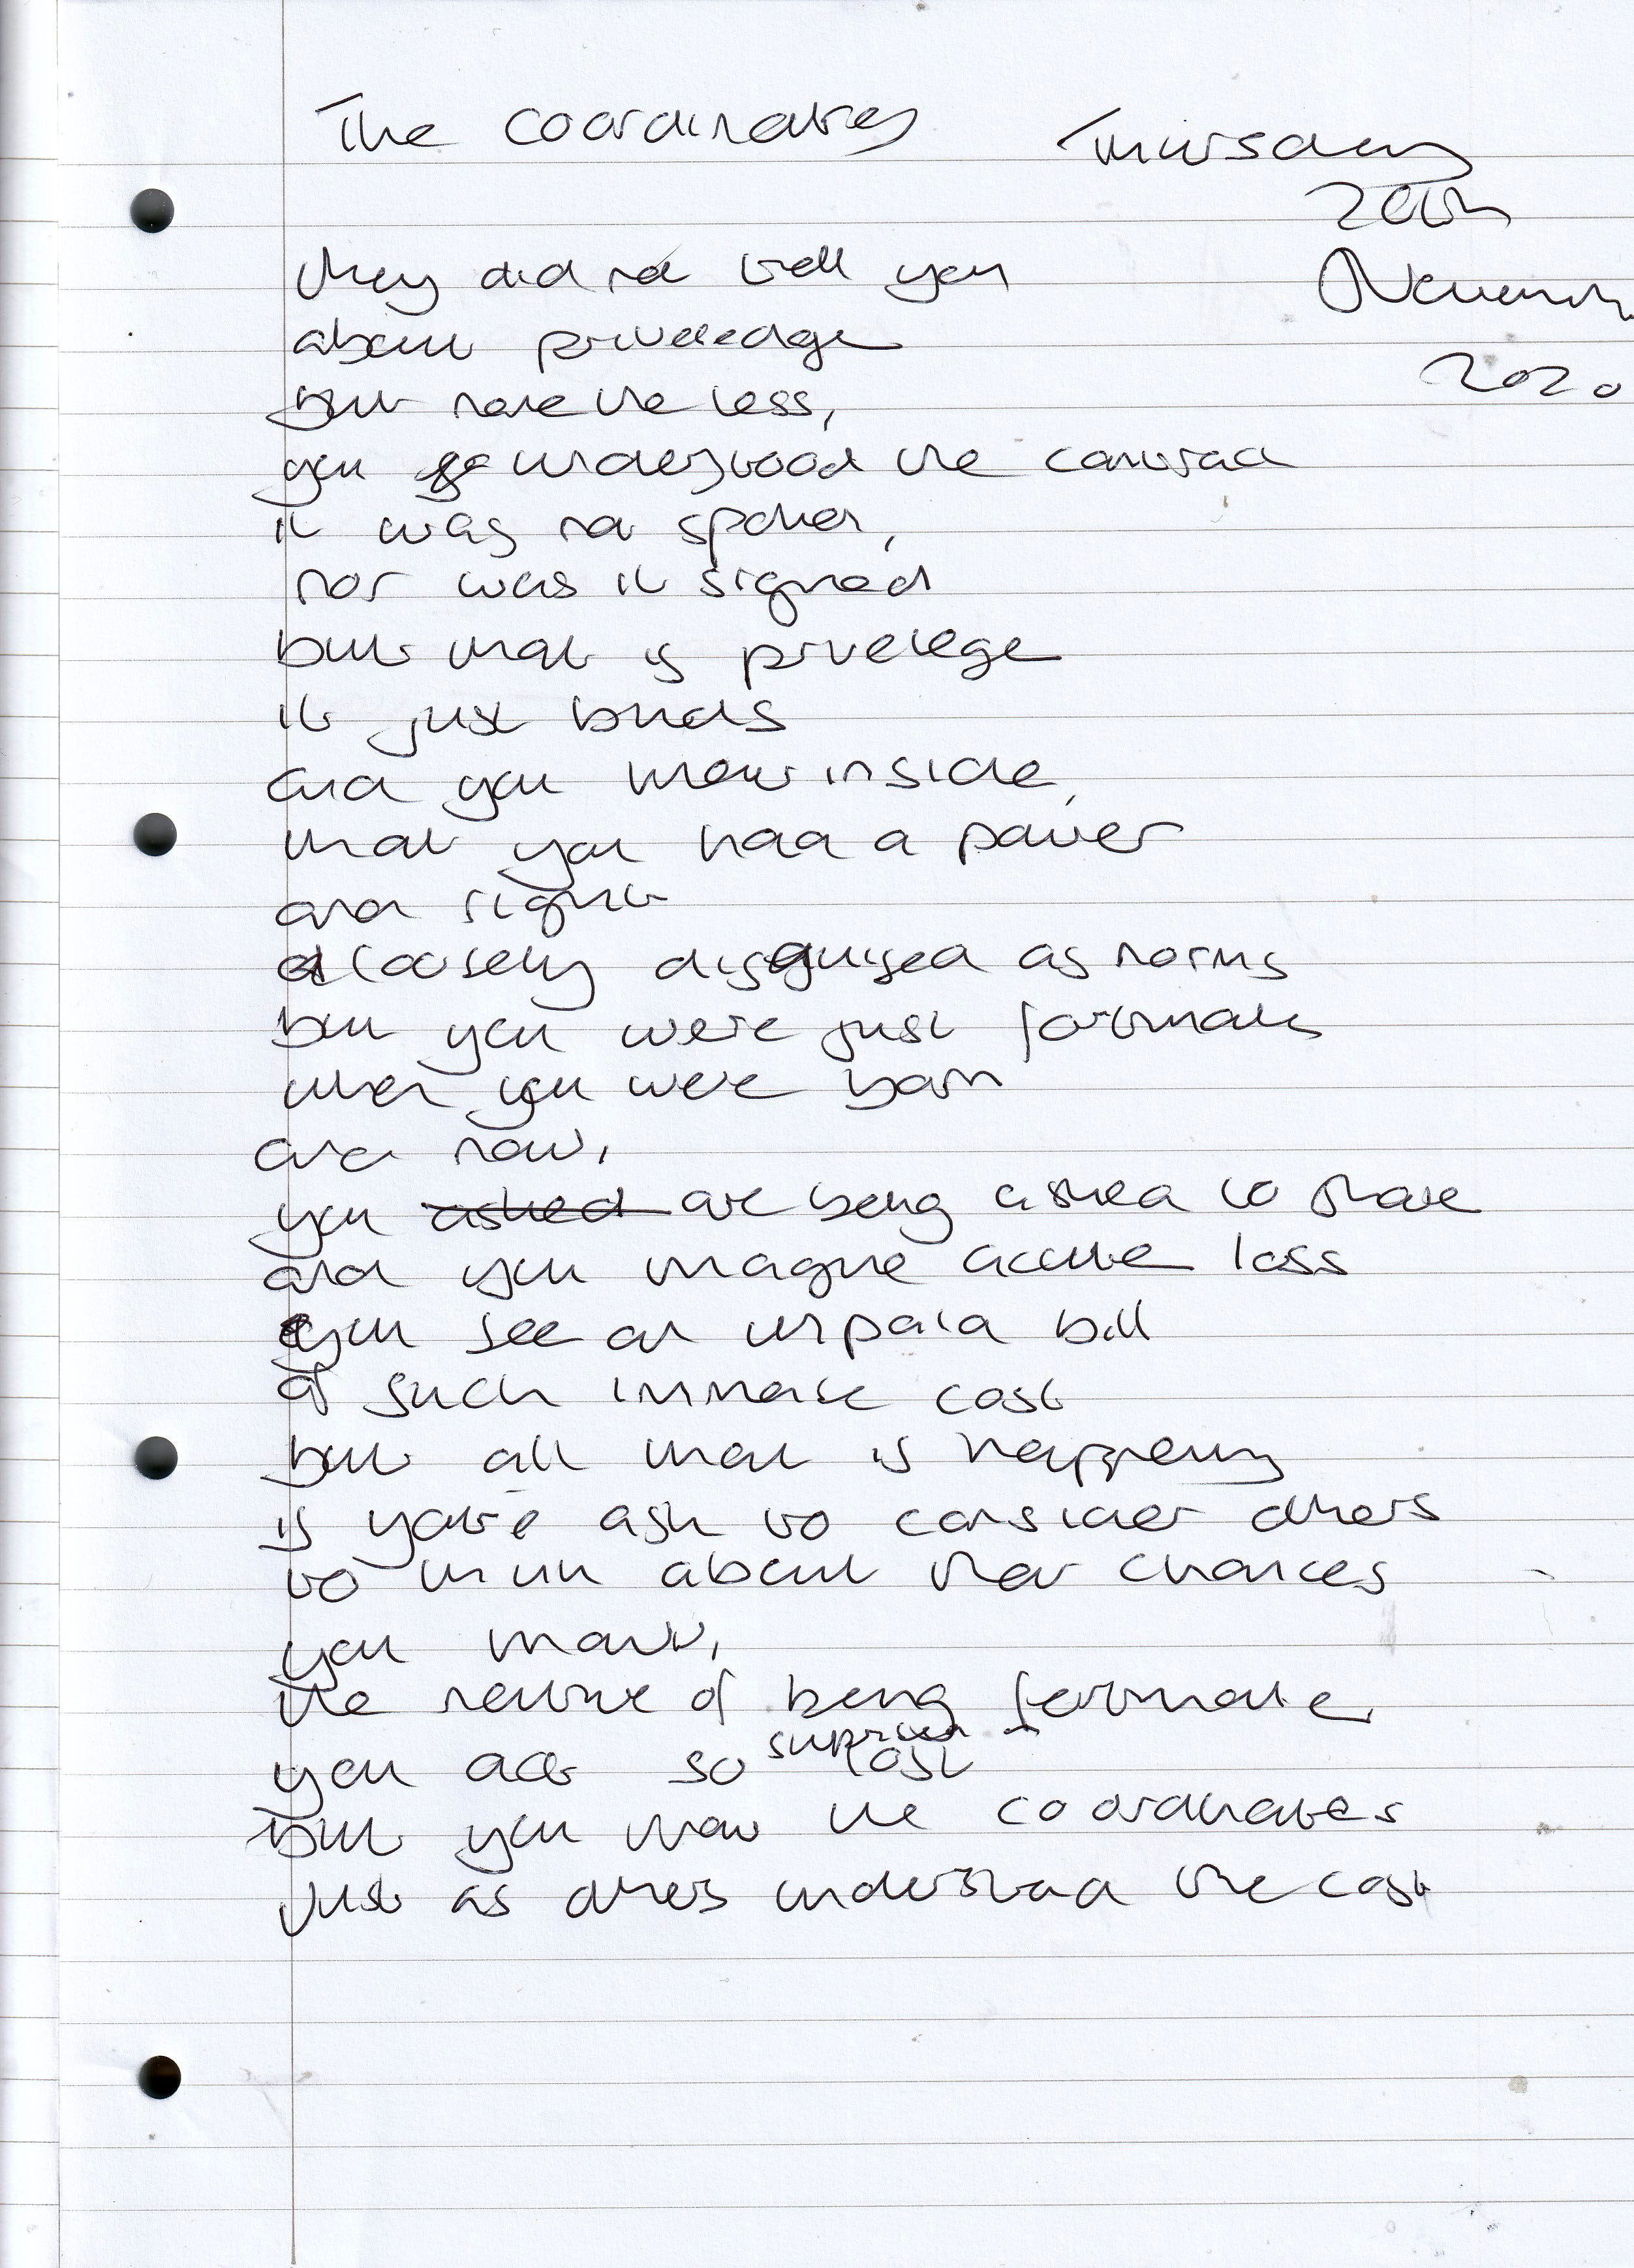 The coordinates
Thursday
20th
November
2020
they did not tell you
about priveledge
but nonetheless,
you understood the contract
it was not spoken,
nor was it signed
but that is privelege
it just binds
and you know inside,
that you had a power
and right
loosely disguised as norms
but you were just fortunate
when you were born
and now,
you asked are being asked to share
and you imagine accute loss
you see an unpaid bill
of such immense cost
but all that is happening
is you're ask to consider others
to think about their chances
you know,
the nature of being fortunate
you act so suprised lost
but you know the coordinates
just as others understand the cost